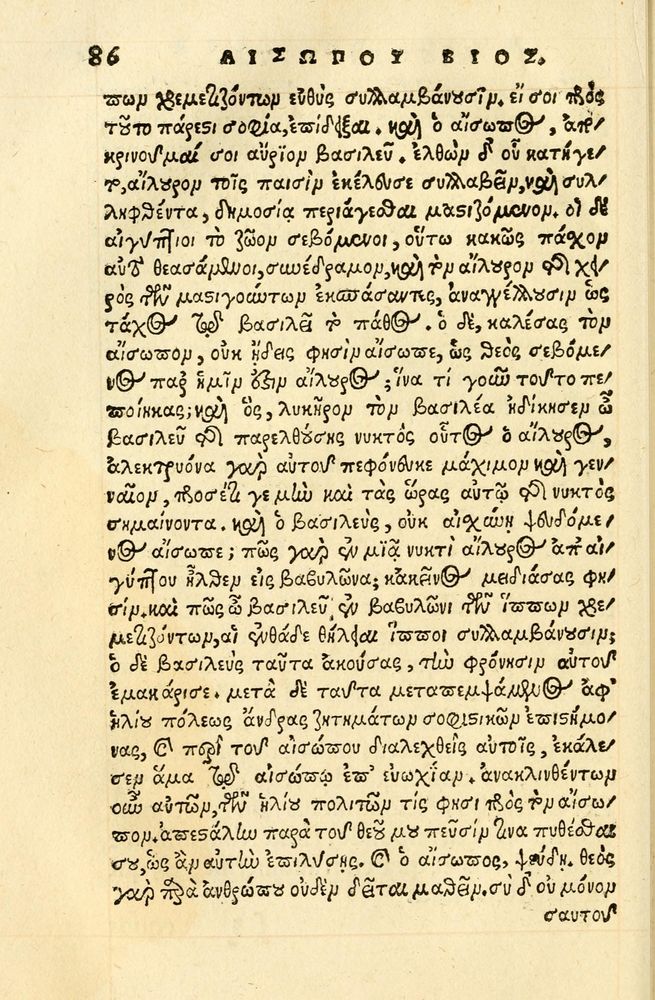 86 ΑΙΣΩΠΟΥ ΒΙΟΣ.
πων χρεμετιζόντων εὐθὺς συλλαμβάνουσιν. εἴ σοι πρὸς
τοῦτο πάρεστι σοφία, ἐπίδειξαι. καὶ ὁ αἴσωπος, ἀπο
κρινοῦμαί σοι αὔριον βασιλεῦ. ἐλθὼν δ' οὗ κατήγε
το, αἴλουρον τοῖς παισὶν ἐκέλευσε συλλαβεῖν, καὶ συλ
ληφθέντα, δημοσίᾳ περιάγεσθαι μαστιζόμενον. οἱ δὲ
αἰγύπτιοι τὸ ζῶον σεβόμενοι, οὕτω κακῶς πάσχον
αὐτὸ θεασάμενοι, συνέδραμον, καὶ τὸν αἴλουρον τῆς χει
ρὸς τῶν μαστιγούντων ἐκσπάσαντες, ἀναγγέλλουσιν ὡς
τάχος τῷ βασιλεῖ τὸ πάθος. ὁ δὲ, καλέσας τὸν
αἴσωπον, οὐκ ᾔδεις φησὶν αἴσωπε, ὡς θεὸς σεβόμε
νος παρ' ἡμῖν ἐστιν αἴλουρος; ἵνα τί γοῦν τοῦτο πε
ποίηκας; καὶ ὃς, λυκῆρον τὸν βασιλέα ἠδίκησεν ὦ
βασιλεῦ τῆς παρελθούσης νυκτὸς οὗτος ὁ αἴλουρος,
ἀλεκτρυόνα γὰρ αὐτοῦ πεφόνευκε μάχιμον καὶ γεν
ναῖον, προσέτι γε μὴν καὶ τὰς ὥρας αὐτῷ τῆς νυκτὸς
σημαίνοντα. καὶ ὁ βασιλεὺς, οὐκ αἰσχύνῃ ψευδόμε
νος αἴσωπε; πῶς γὰρ ἐν μιᾷ νυκτὶ αἴλουρος ἀπ' αἰ
γύπτου ἦλθεν εἰς βαβυλῶνα; κἀκεῖνος μειδιάσας φη
σίν. καὶ πῶς ὦ βασιλεῦ ἐν βαβυλῶνι τῶν ἵππων χρε
μετιζόντων, αἱ ἐνθάδε θήλειαι ἵπποι συλλαμβάνουσιν;
ὁ δὲ βασιλεὺς ταῦτα ἀκούσας, τὴν φρόνησιν αὐτοῦ
ἐμακάρισε. μετὰ δὲ ταῦτα μεταπεμψάμενος ἀφ'
ἡλίου πόλεως ἄνδρας ζητημάτων σοφιστικῶν ἐπιστήμο
νας, καὶ περὶ τοῦ αἰσώπου διαλεχθεὶς αὐτοῖς, ἐκάλε
σεν ἅμα τῷ αἰσώπῳ ἐπ' εὐωχίαν. ἀνακλινθέντων
οὖν αὐτῶν, τῶν ἡλίου πολιτῶν τίς φησι πρὸς τὸν αἴσω
πον. ἀπεστάλην παρὰ τοῦ θεοῦ μου πεῦσίν τινα πυθέσθαι
σου, ὡς ἂν αὐτὴν ἐπιλύσῃς. καὶ ὁ αἴσωπος, ψεύδῃ. θεὸς
γὰρ παρὰ ἀνθρώπου οὐδὲν δεῖται μαθεῖν. σὺ δ' οὐ μόνον
σαυτοῦ